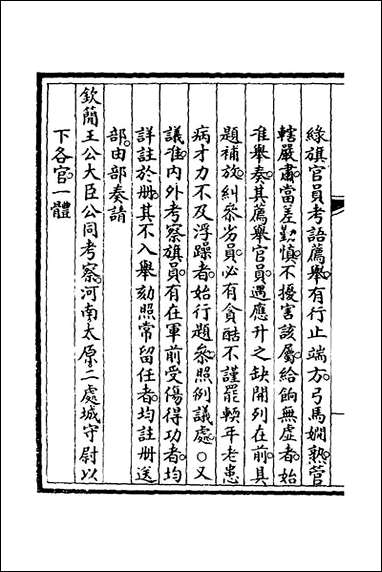 綠旗官員考語薦舉有行止端方弓馬嫺熟管
轄嚴肅當差勤慎不擾害該屬給餉無虛者始
准舉奏其薦舉官員遇應升之缺開列在前具
題補放糾參劣員必有貪酷不謹罷輭年老患
病才力不及浮躁者始行題參照例議處○又
議准內外考察旗員有在軍前受傷得功者均
詳註於册其不入舉劾照常留任者均註册送
部由部奏請
欽簡王公大臣公同考察河南太原二處城守尉以
下各官一體